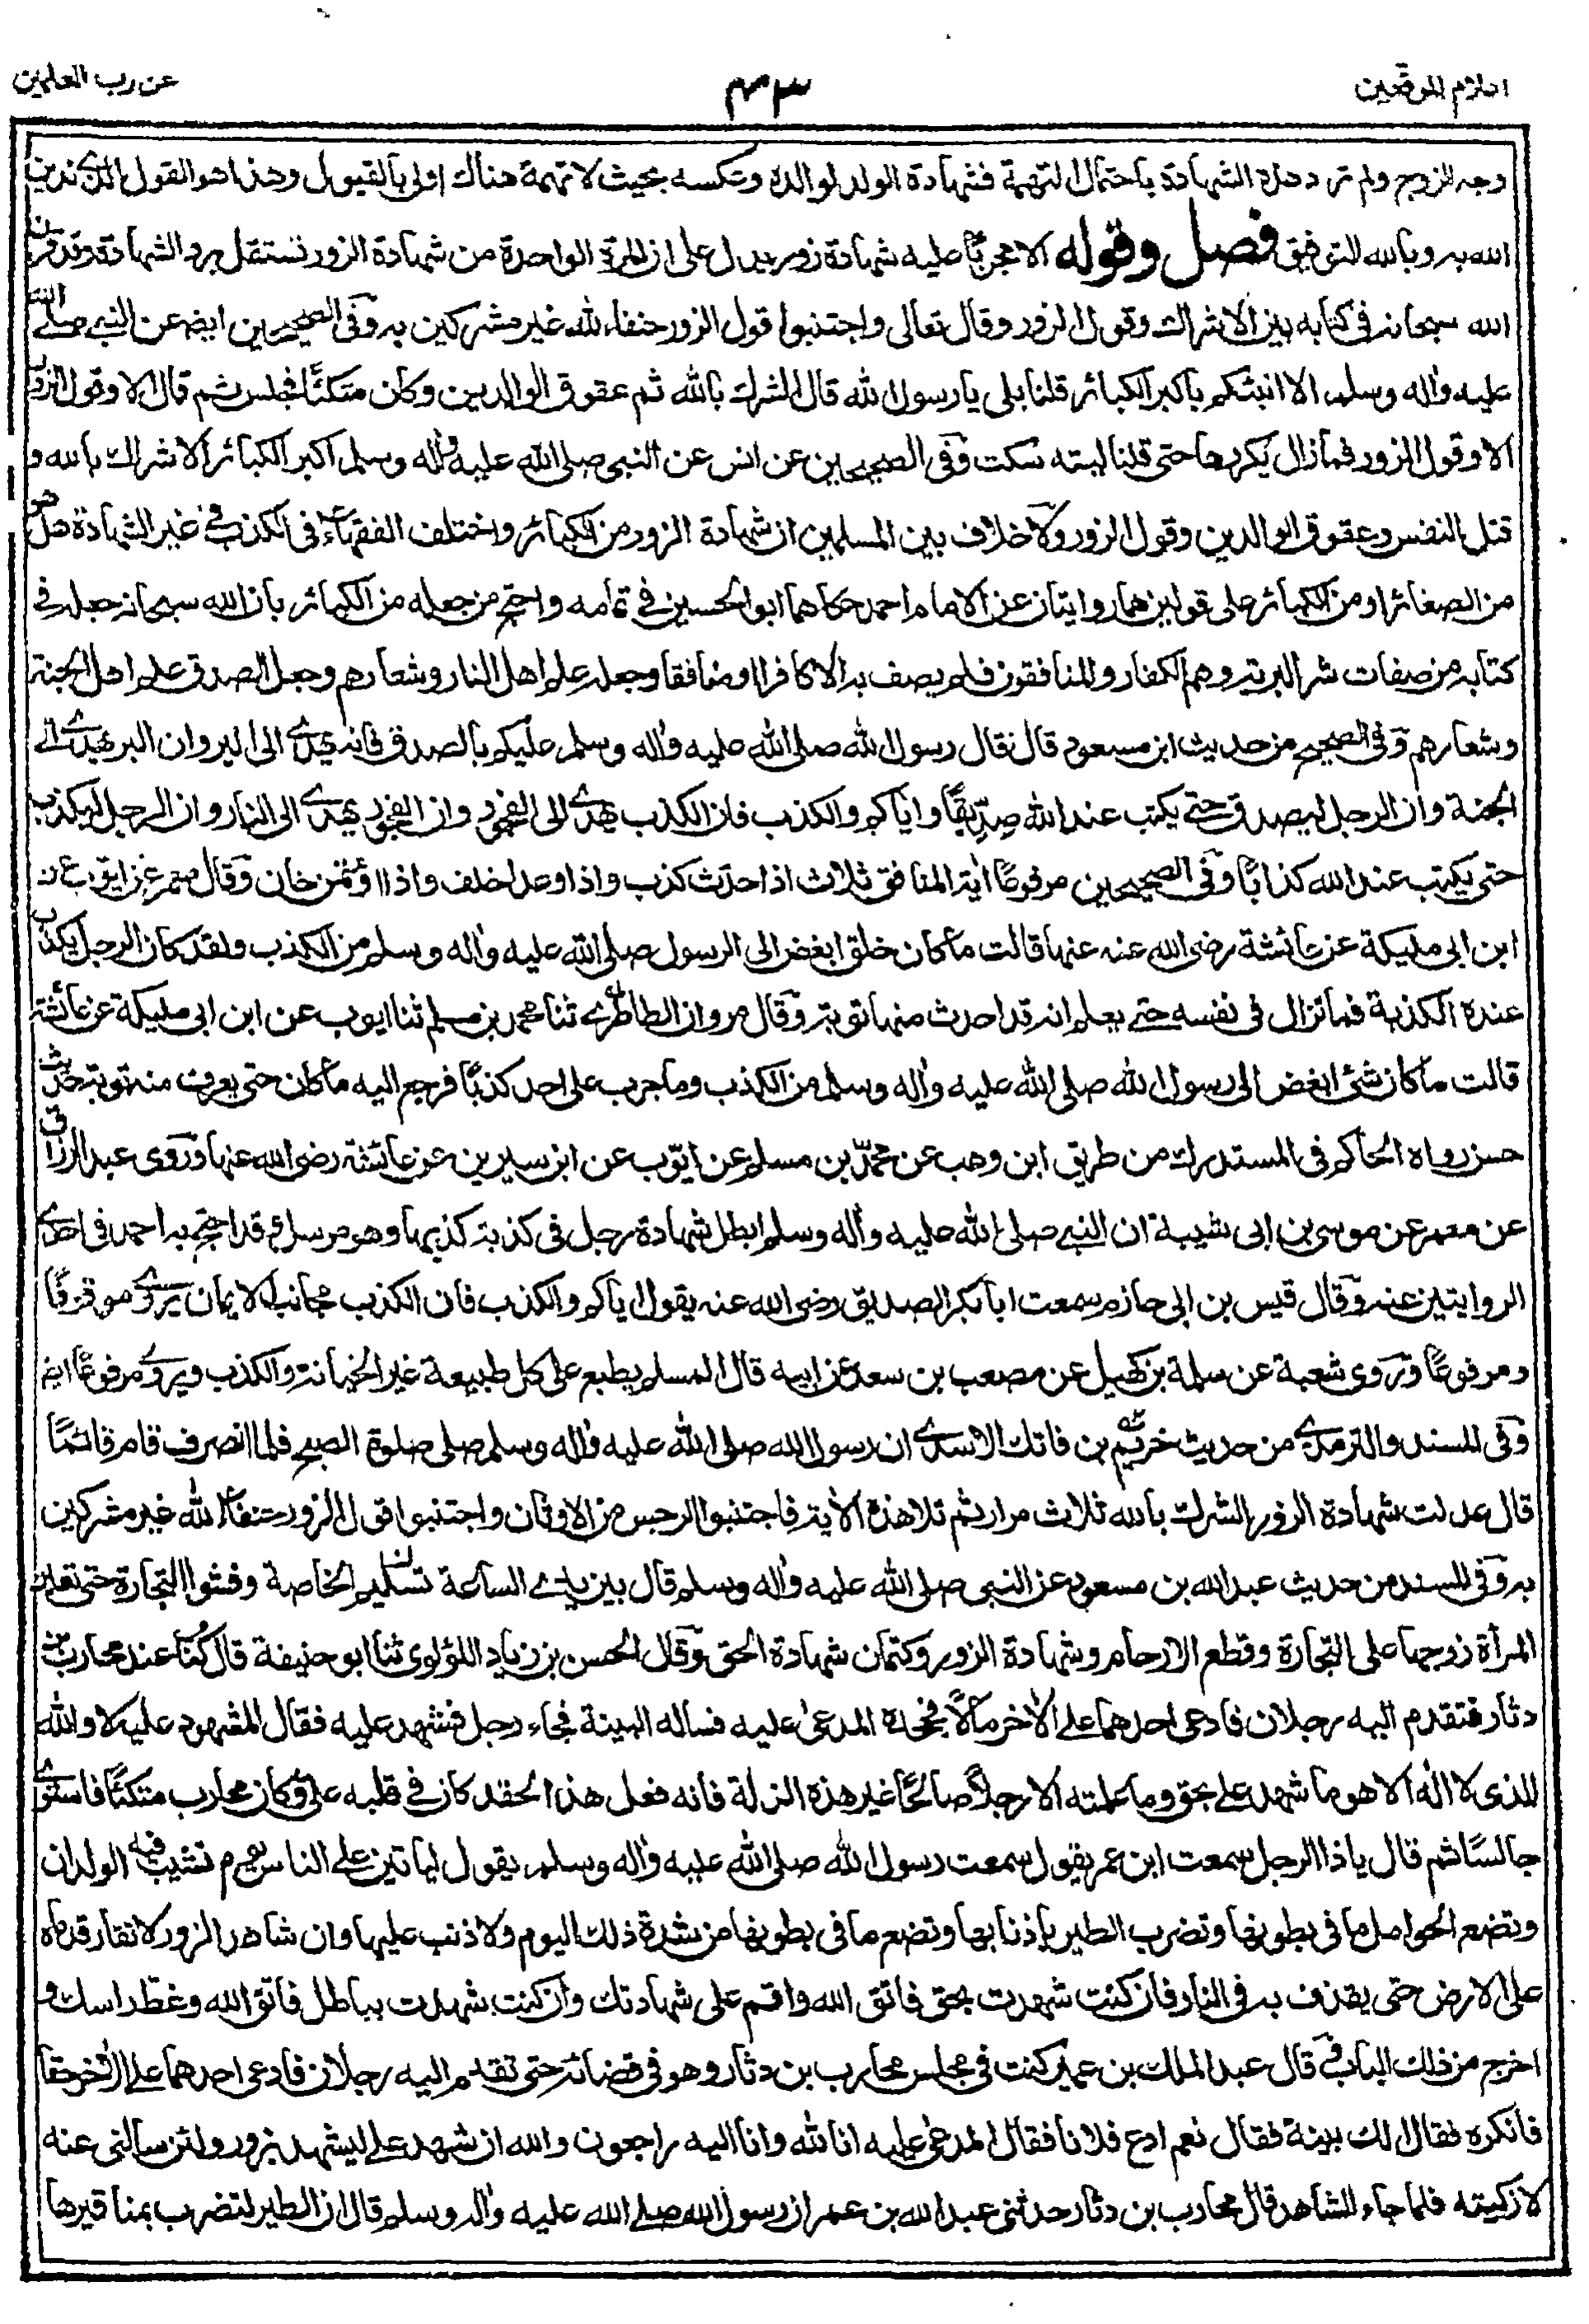 اعلام الموقعين
٤٣
عن رب العلمين
وجه الزوج ولم ترد هذه الشهادة باحتمال التهمة فشهادة الولد لوالده وعكسه بحيث لا تهمة هناك اولى بالقبول وهذا هو القول الذي ندين
الله به وبالله التوفيق فصل وقوله الا مجربًا عليه شهادة زور يدل على ان المرة الواحدة من شهادة الزور تستقل برد الشهادة وقد قرن
الله سبحانه في كتابه بين الاشراك وقول الزور وقال تعالى واجتنبوا قول الزور حنفاء لله غير مشركين به وفى الصحيحين ايضا عن النبي صلے الله
عليه وٰاله وسلم الا انبئكم باكبر الكبائر قلنا بلى يا رسول الله قال الشرك بالله ثم عقوق الوالدين وكان متكئًا فجلس ثم قال الا وقول الزور
الا وقول الزور فما زال يكررها حتى قلنا ليته سكت وفى الصحيحين عن انس عن النبي صلى الله عليه وٰاله وسلم اكبر الكبائر الاشراك بالله و
قتل النفس وعقوق الوالدين وقول الزور ولا خلاف بين المسلمين ان شهادة الزور من الكبائر واختلف الفقهاء فى الكذب في غير الشهادة هل هو
من الصغائر او من الكبائر على قولين هما روايتان عن الامام احمد حكاهما ابو الحسين في تمامه واحتج من جعله من الكبائر بان الله سبحانه جعله في
كتابه من صفات شر البرية وهم الكفار والمنافقون فلم يصف به الا كافرا او منافقا وجعله علم اهل النار وشعارهم وجعل الصدق علم اهل الجنة
وشعارهم وفى الصحيح من حديث ابن مسعود قال قال رسول الله صلى الله عليه وٰاله وسلم عليكم بالصدق فانه يهدي الى البر وان البر يهدي الى
الجنة وان الرجل ليصدق حتى يكتب عند الله صِدّيقًا واياكم والكذب فان الكذب يهدي الى الفجور وان الفجور يهدي الى النار وان الرجل ليكذب
حتى يكتب عند الله كذابًا وفى الصحيحين مرفوعًا اٰية المنافق ثلاث اذا حدّث كذب واذا وعد اخلف واذا اؤتمن خان وقال معمر عن ايوب عن
ابن ابى مليكة عن عائشة رضى الله عنه عنها قالت ما كان خلق ابغض الى الرسول صلى الله عليه وٰاله وسلم من الكذب ولقد كان الرجل يكذب
عنده الكذبة فما تزال فى نفسه حتى يعلم انه قد احدث منها توبة وقال مروان الطاطري ثنا محمد بن مسلم ثنا ايوب عن ابن ابى مليكة عن عائشة
قالت ما كان شئ ابغض الى رسول الله صلى الله عليه وٰاله وسلم من الكذب وما جرب على احد كذبًا فرجع اليه ما كان حتى يعرف منه توبة حديث
حسن رواه الحاكم فى المستدرك من طريق ابن وهب عن محمد بن مسلم عن ايّوب عن ابن سيرين عن عائشة رضى الله عنها وروى عبد الرزاق
عن معمر عن موسى بن ابى شيبة ان النبي صلى الله عليه وٰاله وسلم ابطل شهادة رجل فى كذبة كذبها وهو مرسل وقد احتج به احمد فى احدى
الروايتين عنه وقال قيس بن ابى حازم سمعت ابا بكر الصديق رضى الله عنه يقول اياكم والكذب فان الكذب مجانب الايمان يروى موقوفًا
ومرفوعًا وروى شعبة عن سلمة بن كهيل عن مصعب بن سعد عن ابيه قال المسلم يطبع على كل طبيعة غير الخيانة والكذب ويروى مرفوعًا ايضا
وفى المسند والترمذي من حديث خريم بن فاتك الاسدي ان رسول الله صلى الله عليه وٰاله وسلم صلى صلوة الصبح فلما انصرف قام قائمًا
قال عدلت شهادة الزور الشرك بالله ثلاث مرار ثم تلا هذه الاٰية فاجتنبوا الرجس من الاوثان واجتنبوا قول الزور حنفاء لله غير مشركين
به وفى المسند من حديث عبد الله بن مسعود عن النبي صلى الله عليه وٰاله وسلم قال بين يدي الساعة تسليم الخاصة وفشوا التجارة حتى تعين
المرأة زوجها على التجارة وقطع الارحام وشهادة الزور وكتمان شهادة الحق وقال الحسن بن زياد اللؤلوى ثنا ابو حنيفة قال كُنّا عند محارب بن
دثار فتقدم اليه رجلان فادعى احدهما على الاٰخر مالًا فجحده المدعىٰ عليه فساله البينة فجاء رجل فشهد عليه فقال المشهود عليه لا والله
الذى لا اله الا هو ما شهد على بحق وما علمته الا رجلًا صالحًا غير هذه الزلة فانه فعل هذا الحقد كان في قلبه على وكان محارب متكئًا فاستوى
جالسًا ثم قال يا ذا الرجل سمعت ابن عمر يقول سمعت رسول الله صلى الله عليه وٰاله وسلم يقول لياتين على الناس يوم تشيب فيه الولدان
وتضع الحوامل ما فى بطونها وتضرب الطير باذنابها وتضع ما فى بطونها من شدة ذلك اليوم ولا ذنب عليها وان شاهد الزور لا تقار قدماه
على الارض حتى يقذف به فى النار فان كنت شهدت بحق فاتق الله واقم على شهادتك وان كنت شهدت بباطل فاتق الله وغطّ راسك و
اخرج من ذلك الباب وقال عبد الملك بن عمير كنت فى مجلس محارب بن دثار وهو فى قضائه حتى تقدم اليه رجلان فادعى احدهما على الاٰخر حقا
فانكره فقال الك بينة فقال نعم ادع فلانا فقال المدعى عليه انا لله وانا اليه راجعون والله ان شهد على ليشهد بزور ولئن سالتنى عنه
لازكينه فلما جاء الشاهد قال محارب بن دثار حدثنى عبد الله بن عمر ان رسول الله صلے الله عليه وٰاله وسلم قال ان الطير لتضرب بمناقيرها